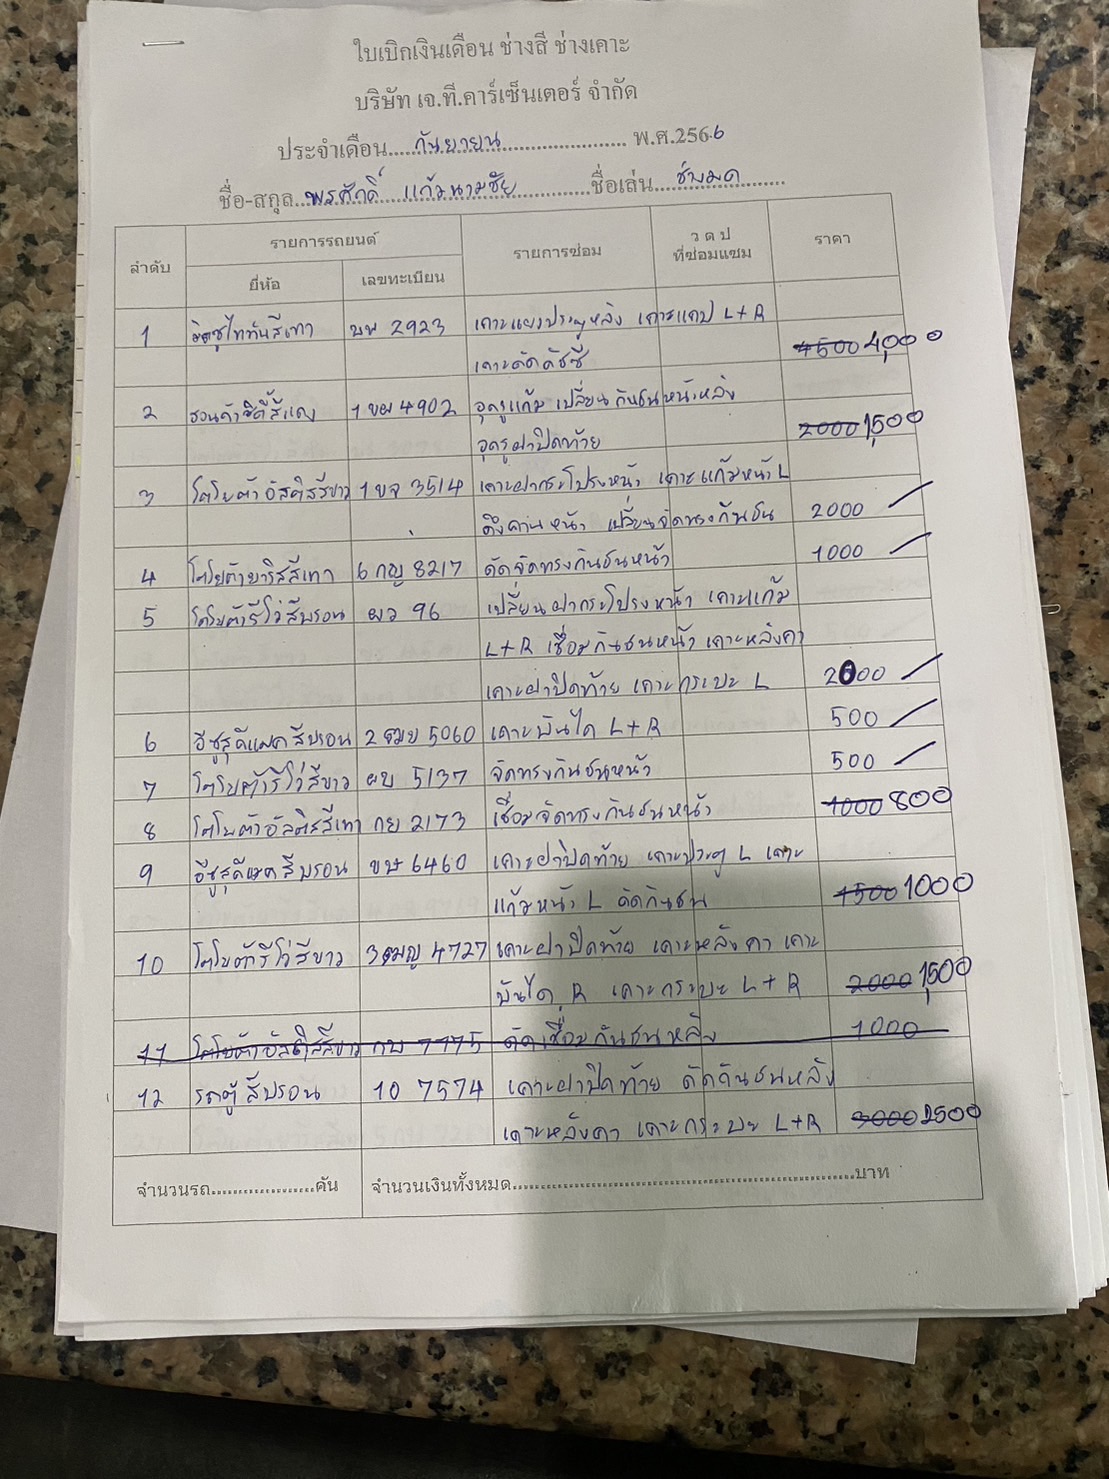 ใบเบิกเงินเดือน ช่างสี ช่างเคาะ
บริษัท เจ.ที.คาร์เซ็นเตอร์ จำกัด
ประจำเดือน.....กันยายน..................... พ.ศ.2566
ชื่อ-สกุล...พรศักดิ์ แก้มนามชัย............ชื่อเล่น....ช่างมด........
ลำดับ รายการรถยนต์ รายการซ่อม ว ด ป ที่ซ่อมแซม ราคา
ยี่ห้อ เลขทะเบียน
1 มิตซูไททันสีเทา บพ 2923 เคาะแผงประตูหลัง เคาะแคป L+R
เคาะดัดคัชซี 4500 4,000
2 ฮอนด้าซิตี้สีแดง 1 ขผ 4902 อุดรูแก้ม เปลี่ยนกันชนหน้าหลัง
อุดรูฝาปิดท้าย 2000 1,500
3 โตโยต้าอัลติสสีขาว 1 ขจ 3514 เคาะฝากระโปรงหน้า เคาะแก้มหน้า L
ดึงคานหน้า เปลี่ยนจัดทรงกันชน 2000
4 โตโยต้ายาริสสีเทา 6 กญ 8217 ดัดจัดทรงกันชนหน้า 1000
5 โตโยต้ารีโว่สีบรอน ผว 96 เปลี่ยนฝากระโปรงหน้า เคาะแก้ม
L+R เชื่อมกันชนหน้า เคาะหลังคา
เคาะฝาปิดท้าย เคาะกระบะ L 2000
6 อีซูสุดีแมคสีบรอน 2 ฒย 5060 เคาะบันได L+R 500
7 โตโยต้ารีโว่สีขาว ผบ 5137 จัดทรงกันชนหน้า 500
8 โตโยต้าอัลติสสีเทา กย 2173 เชื่อมจัดทรงกันชนหน้า 1000 800
9 อีซูสุดีแมคสีบรอน ขษ 6460 เคาะฝาปิดท้าย เคาะประตู L เคาะ
แก้มหน้า L ดัดกันชน 1500 1000
10 โตโยต้ารีโว่สีขาว 3 ฒญ 4727 เคาะฝาปิดท้าย เคาะหลังคา เคาะ
บันได R เคาะกระบะ L+R 2000 1,500
11 โตโยต้าอัลติสสีขาว กบ 7775 ดัดเชื่อมกันชนหลัง 1000
12 รถตู้สีบรอน 10 7574 เคาะฝาปิดท้าย ดัดกันชนหลัง
เคาะหลังคา เคาะกระบะ L+R 3000 2500
จำนวนรถ...................คัน จำนวนเงินทั้งหมด..............................................................บาท